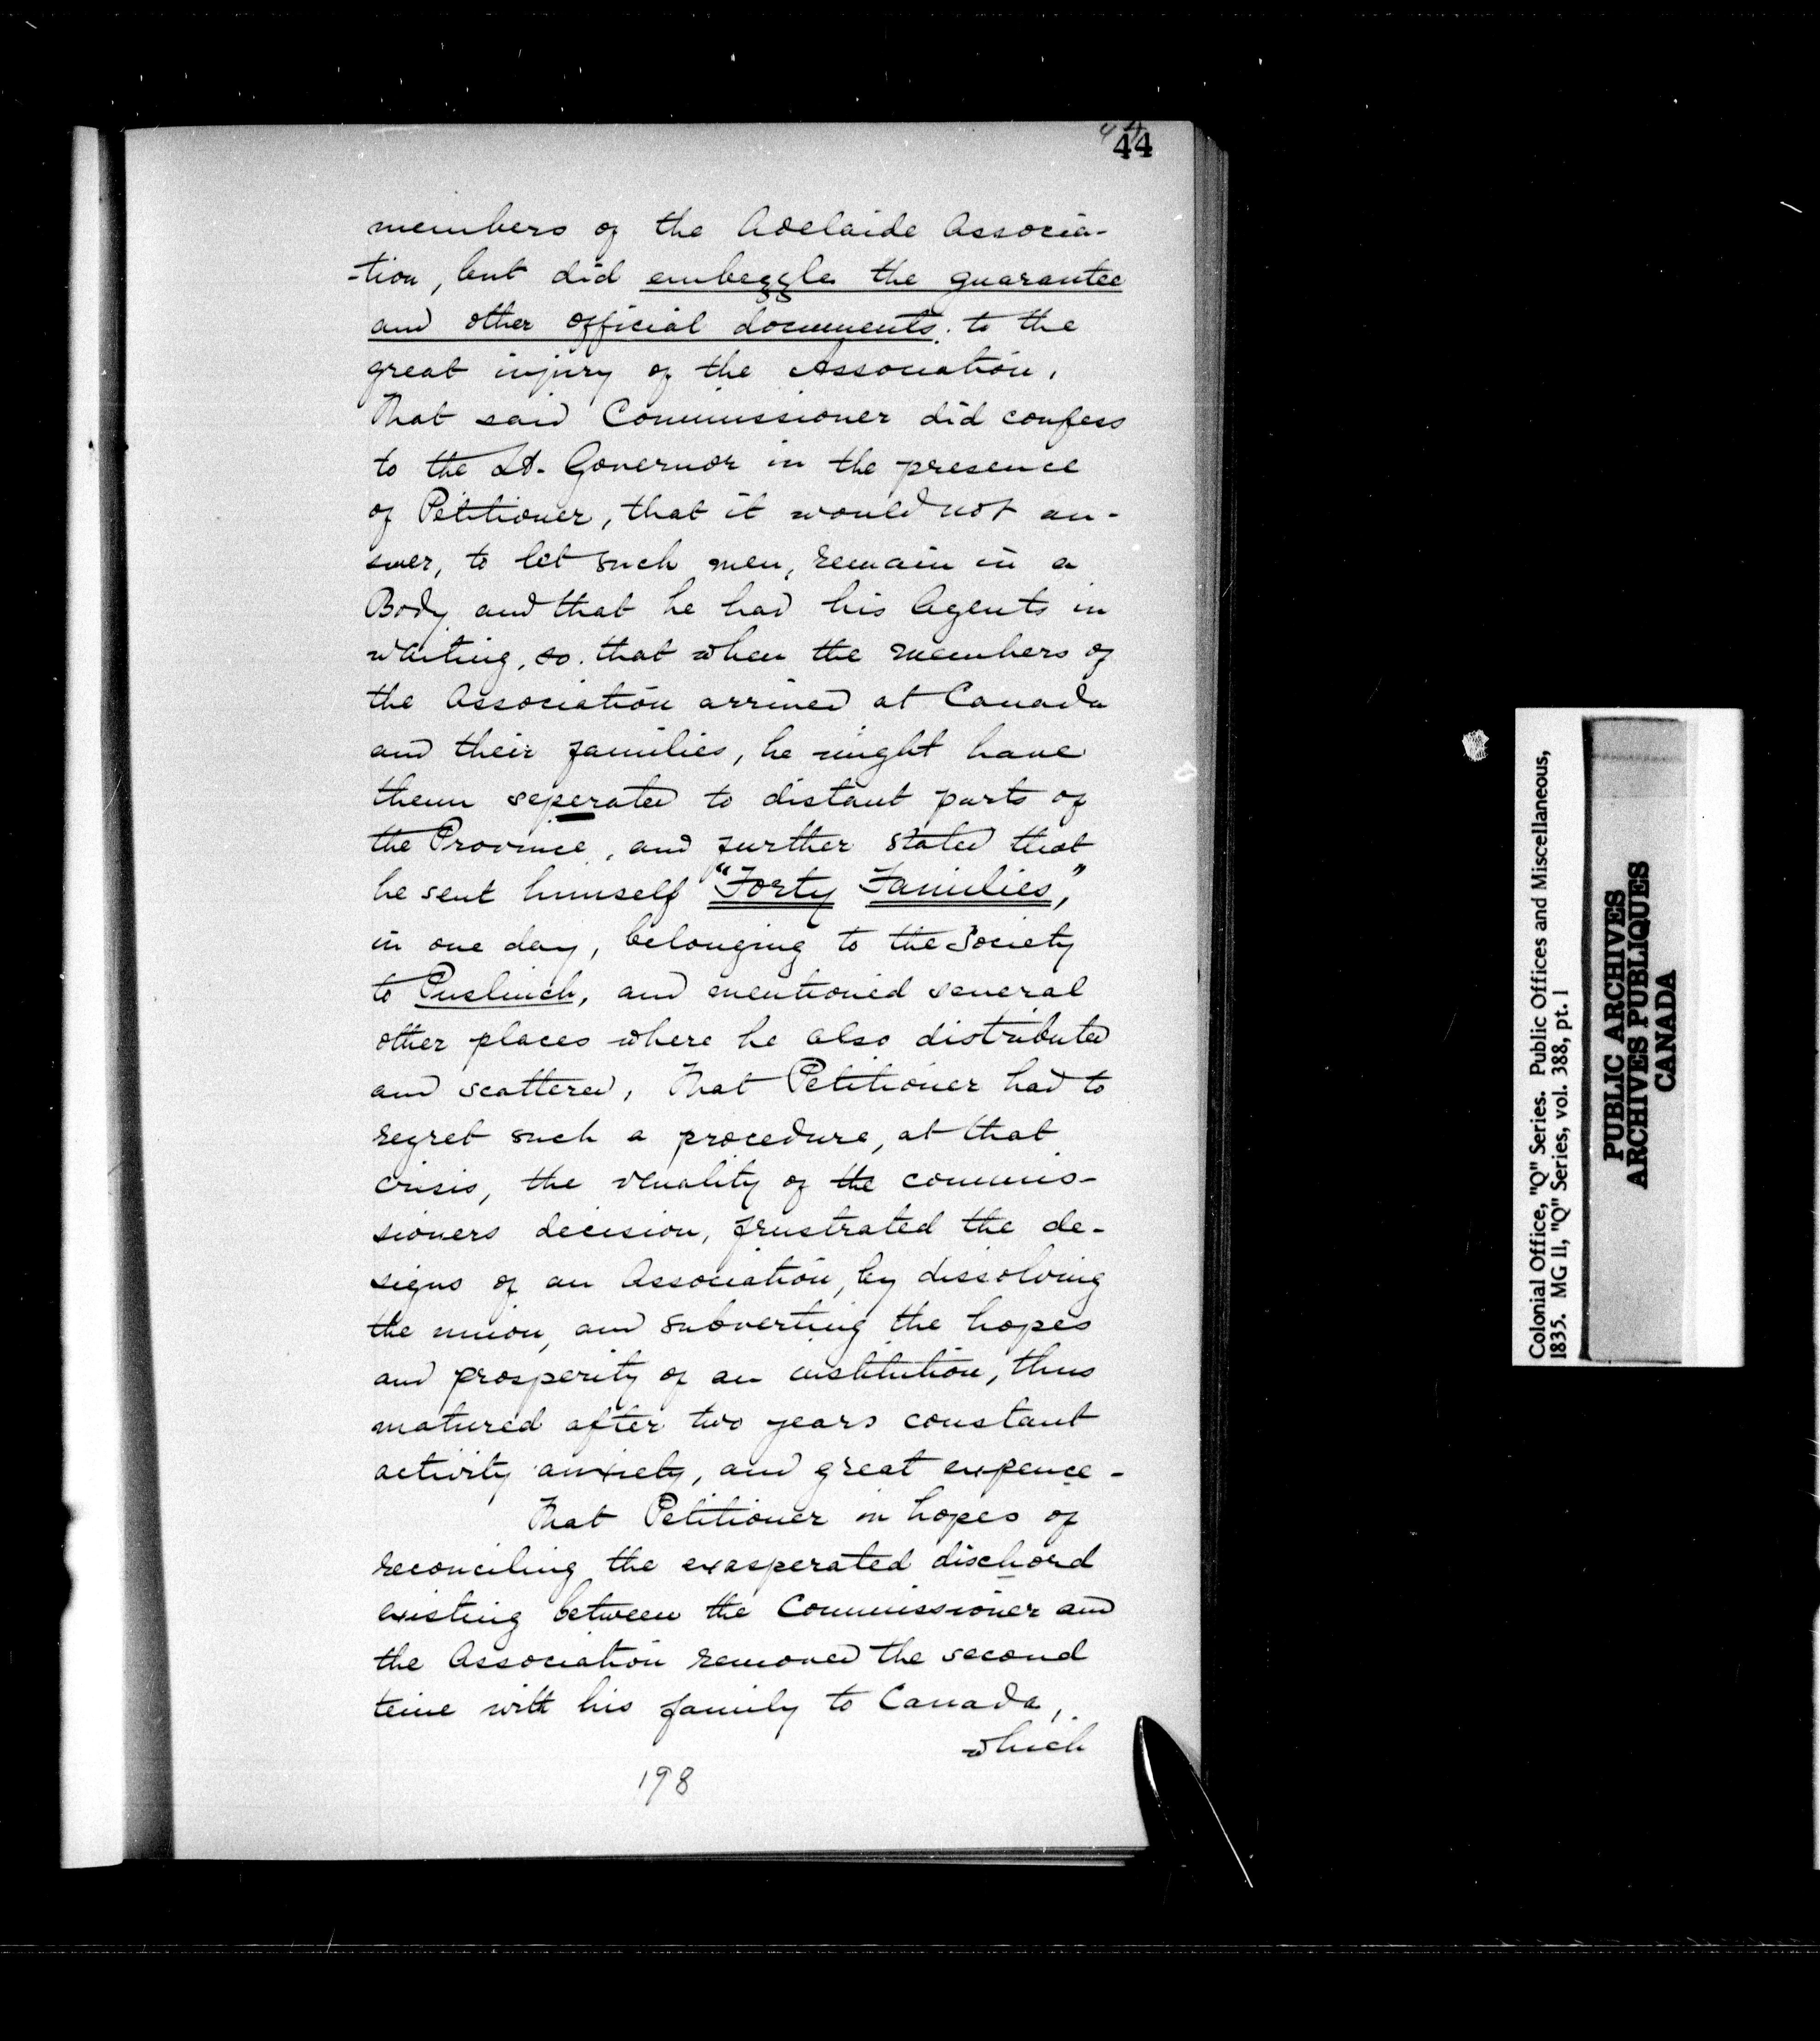 44
44
members of the Adelaide Associa-
-tion, but did embezzle the guarantee
and other official documents. to the
great injury of the Association.
That said Commissioner did confess
to the Lt. Governor in the presence
of Petitioner, that it would not an-
swer, to let such men, remain in a
Body and that he had his Agents in
waiting, so. that when the members of
the Association arrived at Canada
and their families, he might have
them seperated to distant parts of
the Province, and further stated that
he sent himself "Forty Families,"
in one day, belonging to the Society
to Puslinch, and mentioned several
other places where he also distributed
and scattered, That Petitioner had to
regret such a procedure, at that
crisis, the venality of the commis-
sioners decision, frustrated the de-
signs of an Association, by dissolving
the union, and subverting the hopes
and prosperity of an institution, thus
matured after two years constant
activity anxiety, and great expence -
That Petitioner in hopes of
reconciling the exasperated dischord
existing between the Commissioner and
the Association removed the second
time with his family to Canada,
which
198
Colonial Office, "Q" Series. Public Offices and Miscellaneous,
1835. MG 11, "Q" Series, vol. 388, pt. 1
PUBLIC ARCHIVES
ARCHIVES PUBLIQUES
CANADA